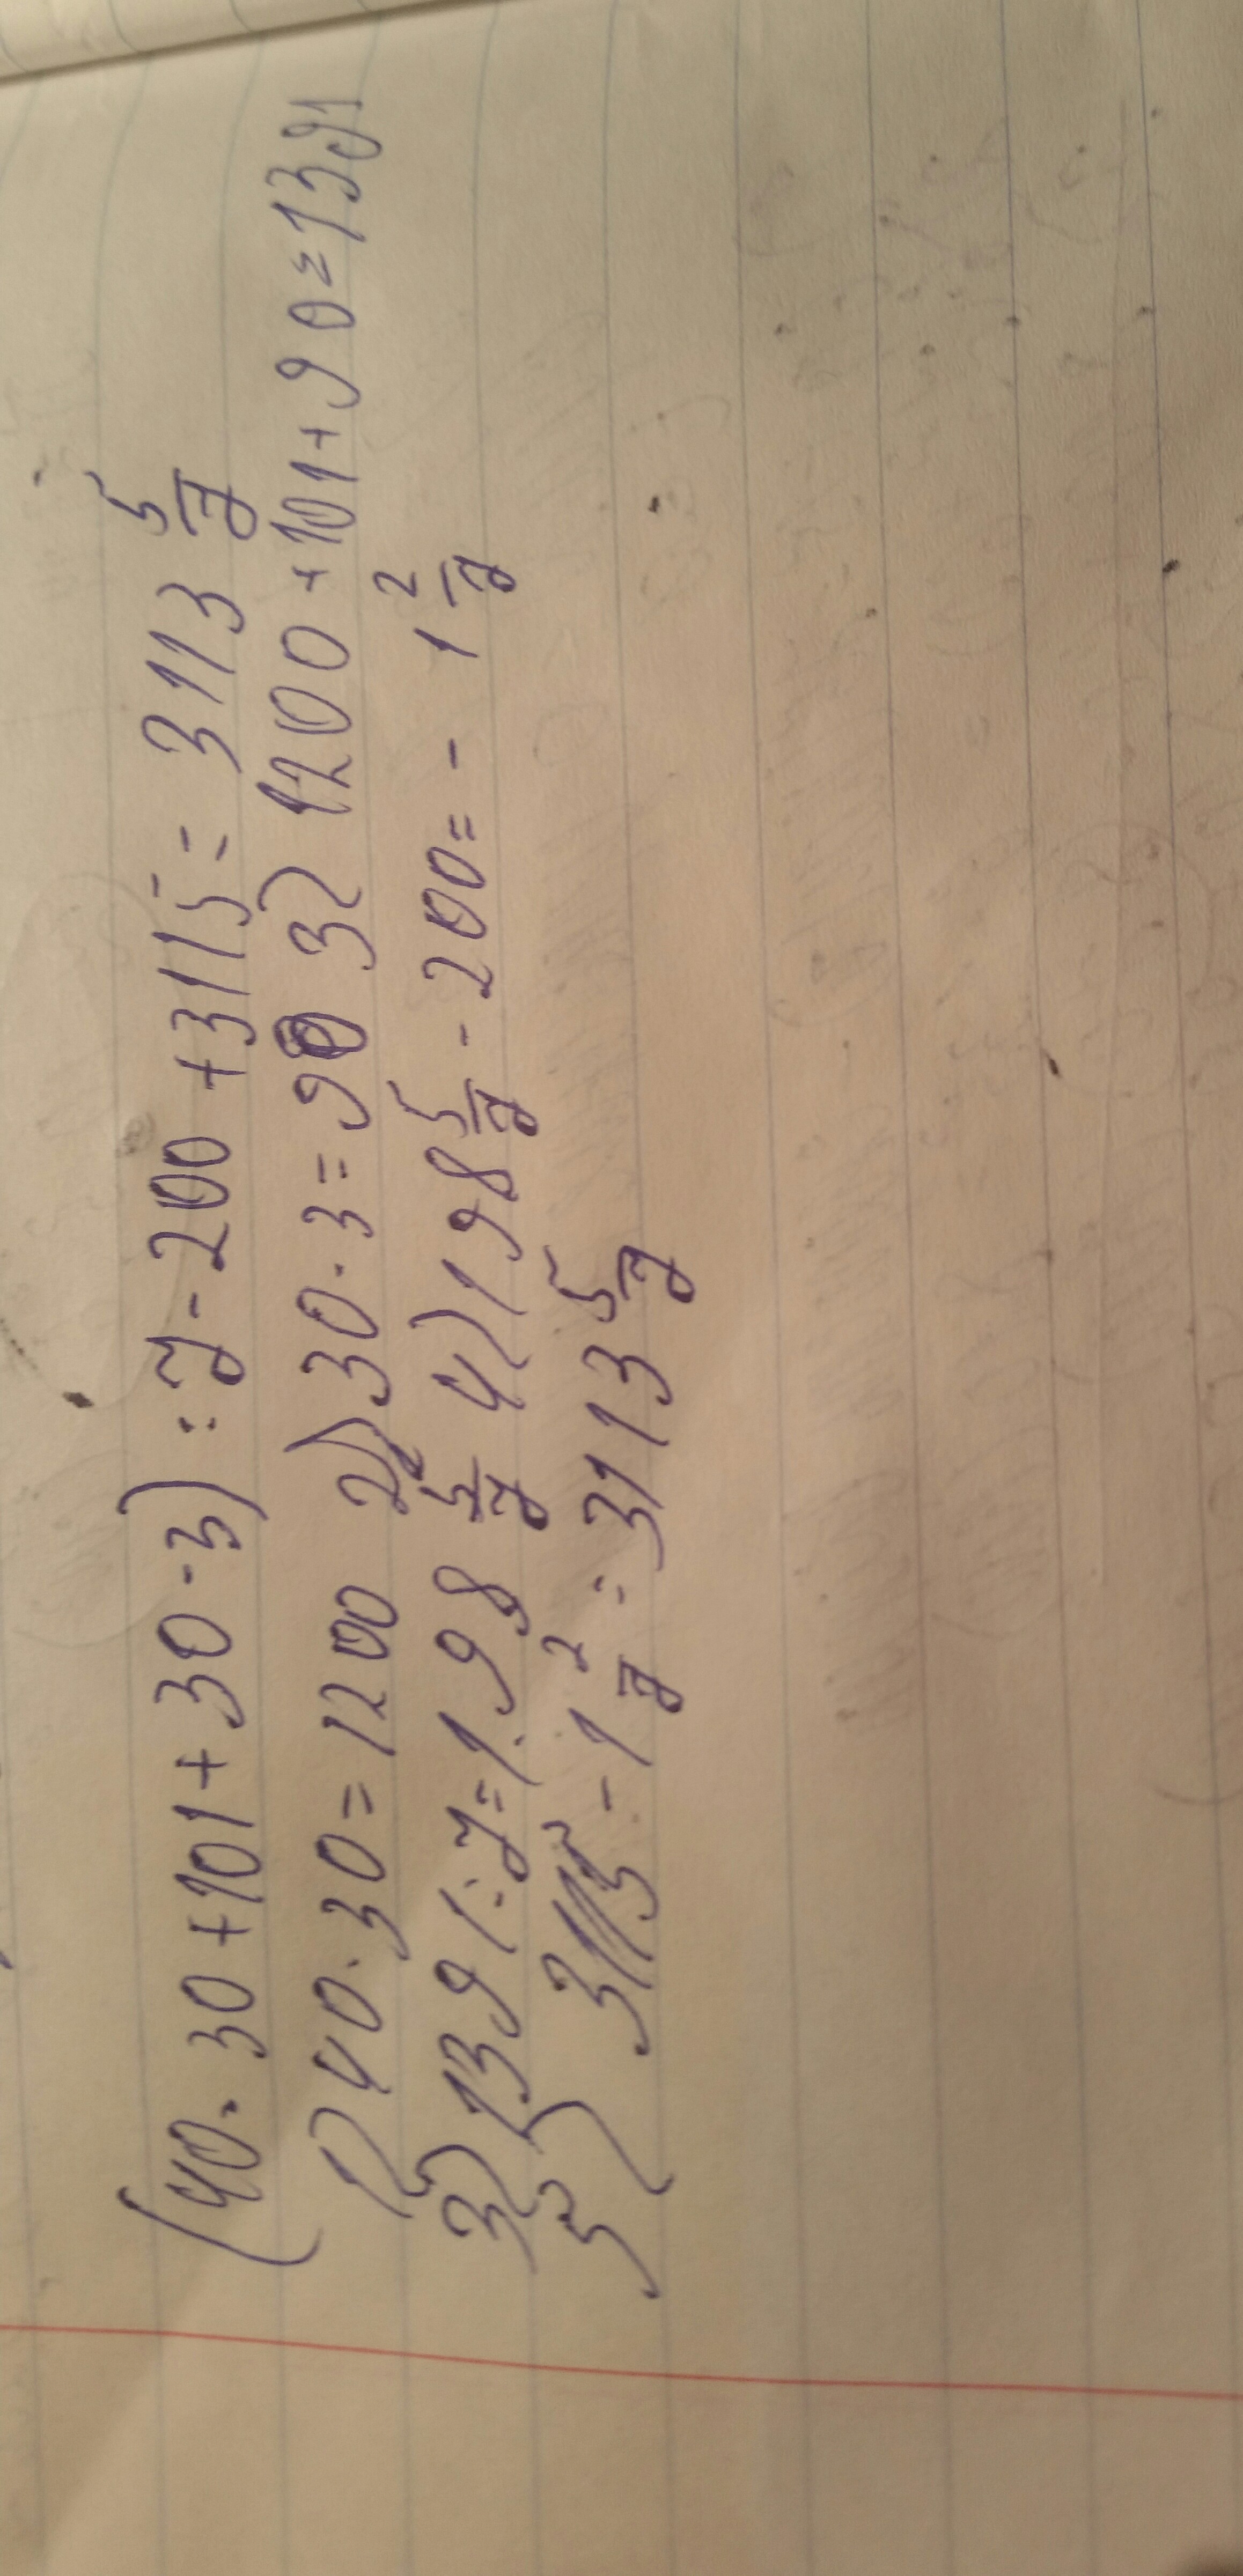 (40·30+101+30·3):7-200+3115=3113 5/7
1) 40·30=1200 2) 30·3=90 3) 1200+101+90=1391
3) 1391:7=198 5/7 4) 198 5/7-200=-1 2/7
5) 3115-1 2/7=3113 5/7